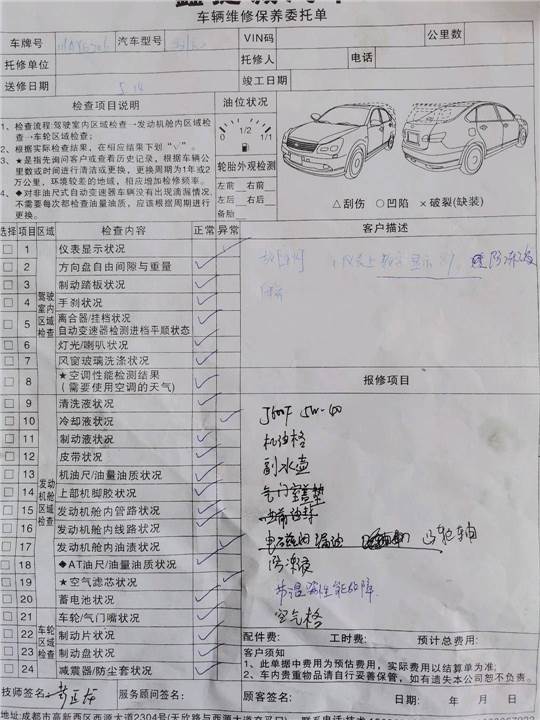 车辆维修保养委托单
车牌号 汽车型号 VIN码 公里数
托修单位 托修人 电话
送修日期 5.14 竣工日期
检查项目说明 油位状况
1、检查流程:驾驶室内区域检查→发动机舱内区域检查→车轮区域检查;
2、根据实际检查结果,在相应结果下划"√"。
3、★是指先询问客户或查看历史记录,根据车辆公里数或时间进行清洁或更换,更换周期为1年或2万公里,环境较差的地域,相应增加检修频率。
4、◆对非油尺式自动变速器车辆没有出现滴漏情况,不需要每次都检查油量油质,应该根据周期进行更换。
0 1/2 1/1
轮胎外观检测
左前 右前
左后 右后
备胎
△刮伤 ○凹陷 ×破裂(缺装)
选择 项目 区域 检查内容 正常 异常 客户描述
驾驶室内区域检查
1 仪表显示状况
2 方向盘自由间隙与重量
3 制动踏板状况
4 手刹状况
5 离合器/挂档状况
自动变速器检测进档平顺状态
6 灯光/喇叭状况
7 风窗玻璃洗涤状况
8 ★空调性能检测结果
(需要使用空调的天气)
报修项目
发动机舱区域检查
9 清洗液状况
10 冷却液状况
11 制动液状况
12 皮带状况
13 机油尺/油量油质状况
14 上部机脚胶状况
15 发动机舱内管路状况
16 发动机舱内线路状况
17 发动机舱内油渍状况
18 ◆AT油尺/油量油质状况
19 ★空气滤芯状况
20 蓄电池状况
车轮区域检查
21 车轮/气门嘴状况
22 制动片状况
23 制动盘状况
24 减震器/防尘套状况
5W-40
机油格
副水壶
气门室盖垫
防冻液
空气格
配件费: 工时费: 预计总费用:
客户须知
1、此单据中费用为预估费用,实际费用以结算单为准;
2、车内贵重物品请自行妥善保管,如有遗失本公司恕不负责。
技师签名: 服务顾问签名: 顾客签名: 日期: 年 月 日